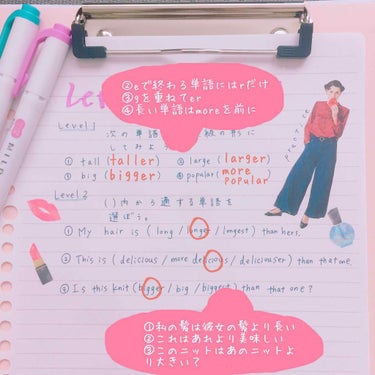 ②eで終わる単語にはrだけ
③gを重ねてer
④長い単語はmoreを前に
Le
Level 1
次の単語 線の形に
してみよ
① tall (taller) ③ large (larger)
② big (bigger) ④ popular (more popular)
practice
MILD
Level 2
( )内から適する単語を
選ぼう。
① My hair is (long / longer / longest) than hers.
② This is (delicious / more delicious / deliciouser) than that one.
③ Is this knit (bigger / big / biggest) than that one?
①私の髪は彼女の髪より長い
②これはあれより美味しい
③このニットはあのニットよ
り大きい?